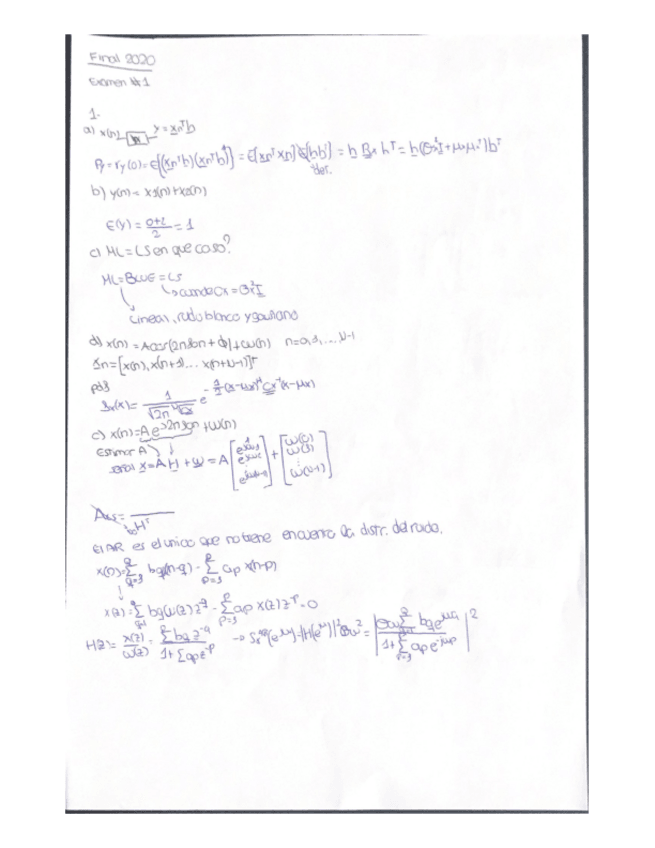 Final 2020
Examen #1
1-
a) x(n) h y = xnᵀh
Py = ry(0) = E{(xnᵀh)(xnᵀh)ᴴ} = E[xnᵀxn] E[hhᵀ] = h Rx hᵀ = h(σx²I + μxμxᵀ)hᵀ
det.
b) y(n) = x1(n) + x2(n)
E(y) = 0+2/2 = 1
c) ML = LS en que caso?
ML = BLUE = LS
cuando Cx = σx²I
Lineal, ruido blanco y gaussiano
d) x(n) = Acos(2πf0n + ϕ) + w(n) n=0,1,...,N-1
xn = [x(n), x(n+1)... x(n+N-1)]ᵀ
pdf
fx(x) = 1/√2πᴺ√Cx e^-½(x-μx)ᴴCx⁻¹(x-μx)
e) x(n) = Ae^j2πf0n + w(n)
Estimar A
x = A H + w = A [1 ] + [w(0) w(1) ⋮ w(N-1)]
=
Hᵀ
El AR es el unico que no tiene en cuenta la distr. del ruido.
x(n) = Σ bq w(n-q) - Σ ap x(n-p)
x(z) = Σ bq w(z) z^-q - Σ ap x(z) z^-p
H(z) = x(z)/w(z) = Σ bq z^-q / 1+Σ ap z^-p → (e^jω) = |H(e^jω)|² σw² = | σw Σ bq e^-jωq / 1+Σ ap e^-jωp |²